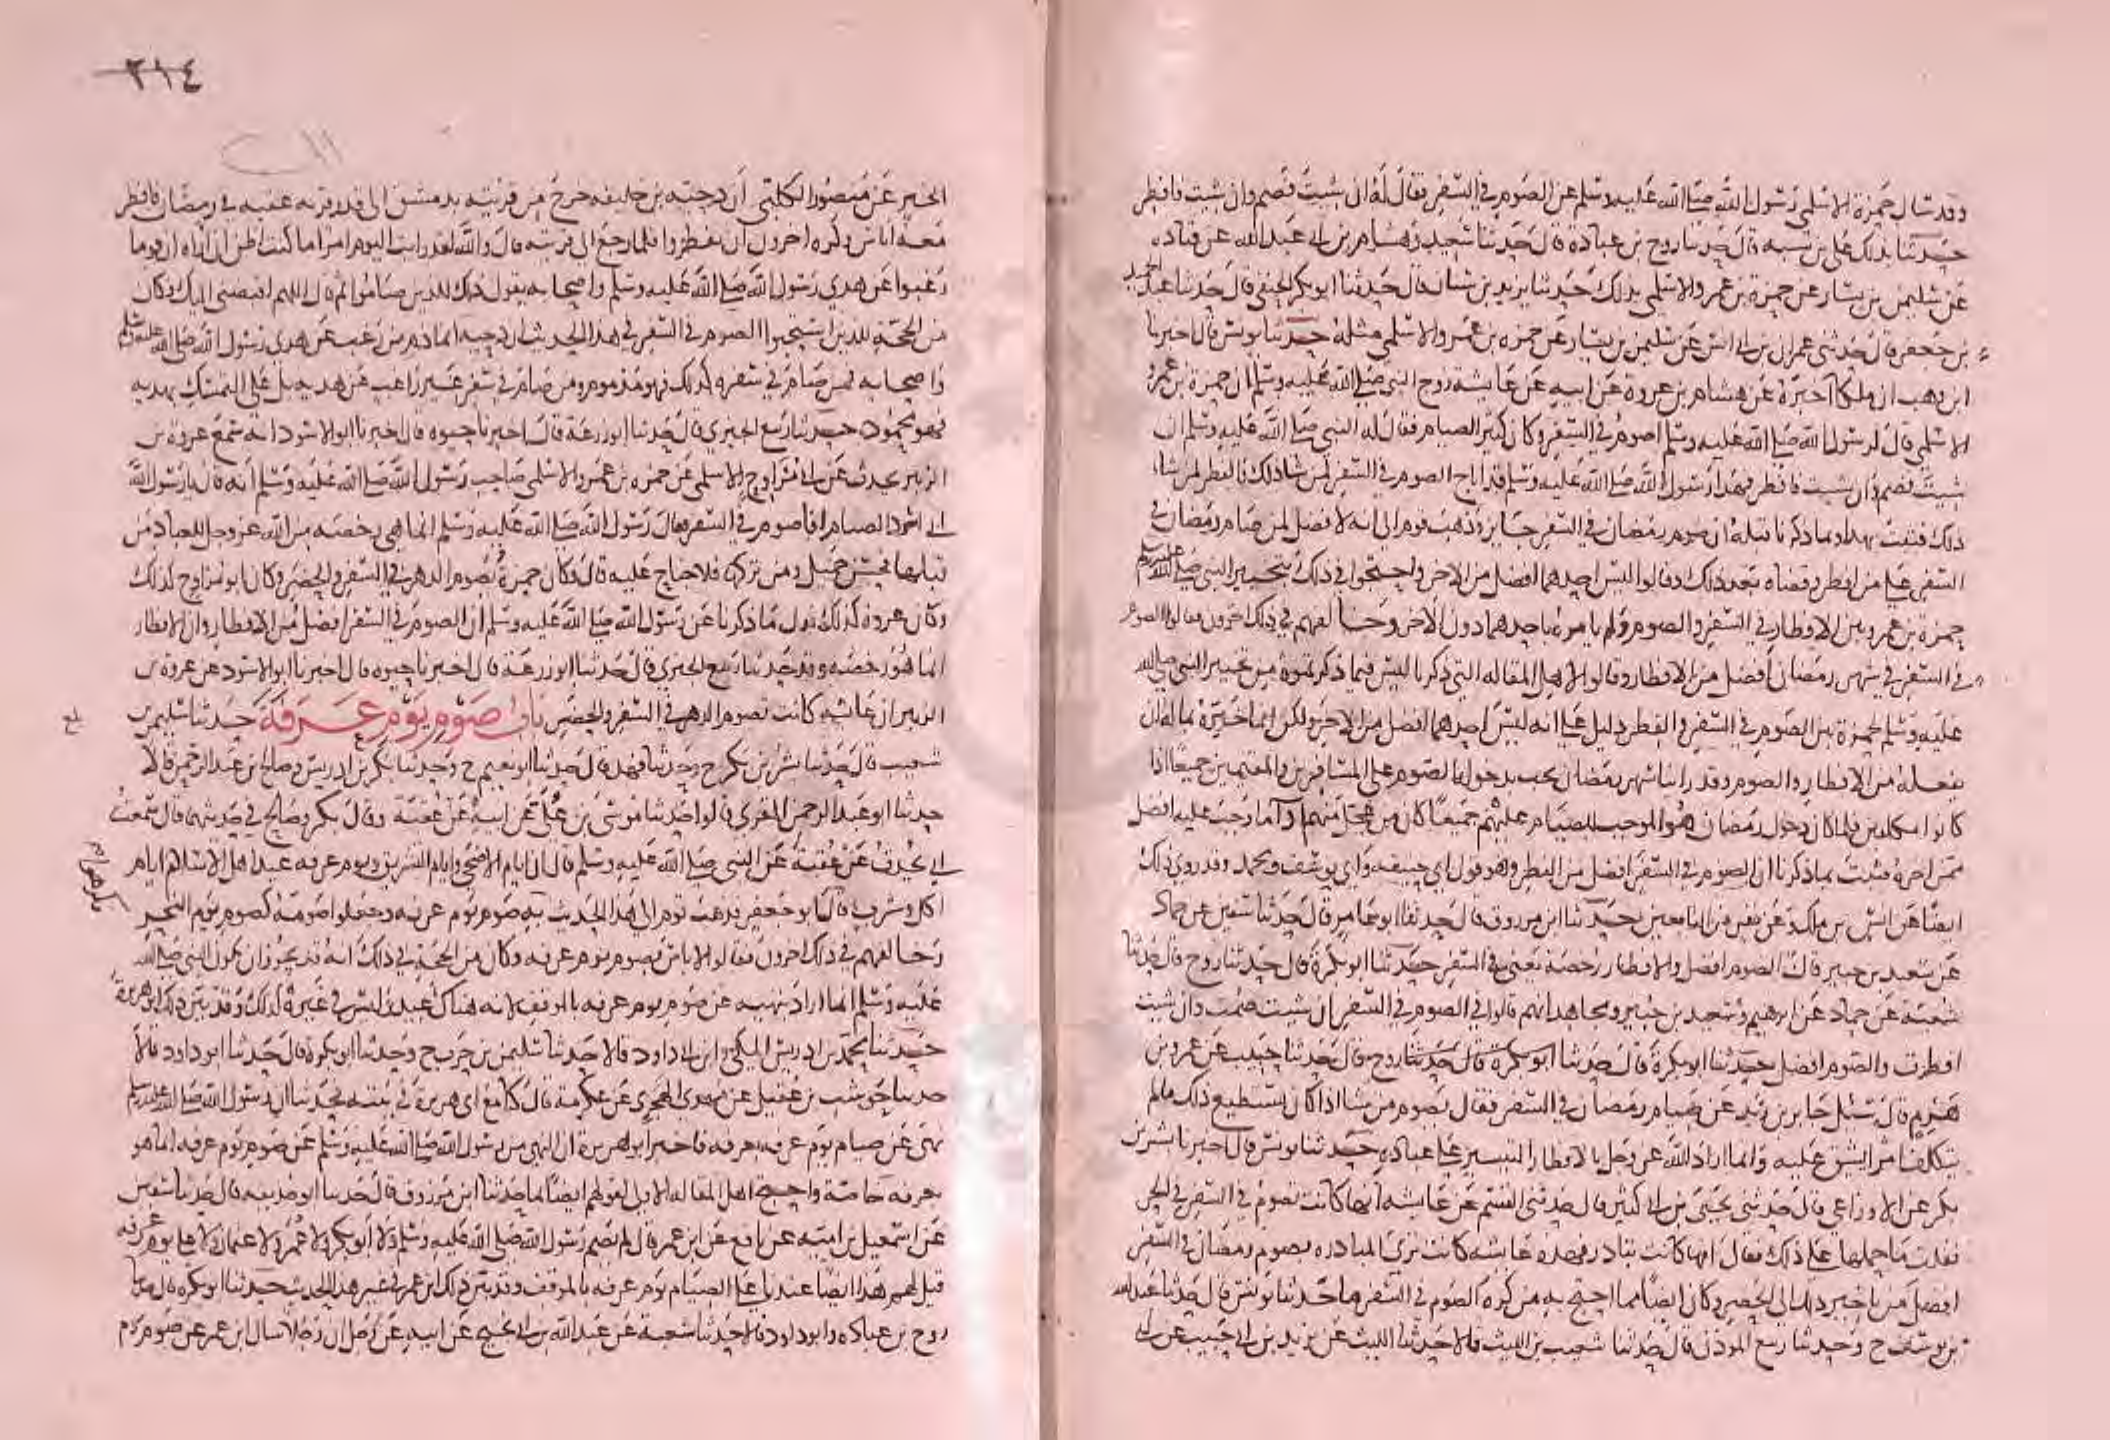 وقد سال حمزة الاسلمي رسول الله صلى الله عليه وسلم عن الصوم في السفر فقال له ان شيت فصم وان شيت فافطر
حدثنا بذلك علي بن شيبه قال حدثنا روح بن عبادة قال حدثنا سعيد وهشام بن ابي عبد الله عن قتاده
عن سليمن بن يسار عن حمزة بن عمرو الاسلمي بذلك حدثنا يزيد بن سنان قال حدثنا ابو بكر الحنفي قال حدثنا عبد الحميد
بن جعفر قال حدثني عمران بن ابي انس عن سليمن بن يسار عن حمزه بن عمرو الاسلمي مثله حدثنا يونس قال اخبرنا
ابن وهب ان ملكا اخبره عن هشام بن عروة عن ابيه عن عايشة زوج النبي صلى الله عليه وسلم ان حمزة بن عمرو
الاسلمي قال لرسول الله صلى الله عليه وسلم اصوم في السفر وكان كثير الصيام فقال له النبي صلى الله عليه وسلم ان
شيت فصم وان شيت فافطر فهذا رسول الله صلى الله عليه وسلم قد اباح الصوم في السفر لمن شا ذلك والفطر لمن شا
ذلك فثبت بهذا وبما ذكرنا قبله ان صوم رمضان في السفر جايز وذهب قوم الى انه لا فضل لمن صام رمضان في
السفر على من افطر وقضاه بعد ذلك وقالوا ليس احدهما افضل من الاخر واحتجوا في ذلك بتخيير النبي صلى الله عليه وسلم
حمزة بن عمرو بين الافطار في السفر والصوم ولم يامره باحدهما دون الاخر وخالفهم في ذلك اخرون فقالوا الصوم
في السفر في شهر رمضان افضل من الافطار وقالوا لاهل المقاله التي ذكرنا ليس فيما ذكرتموه من تخيير النبي صلى الله
عليه وسلم لحمزة بين الصوم في السفر والفطر دليل على انه ليس احدهما افضل من الاخر ولكن انما خيره بما له ان
يفعله من الافطار والصوم وقد راينا شهر رمضان يجب بدخوله الصوم على المسافرين والمقيمين جميعا اذا
كانوا مكلفين فلما كان دخول رمضان هو الموجب للصيام عليهم جميعا كان من عجل منهم ادا ما وجب عليه افضل
ممن اخره فثبت بما ذكرنا ان الصوم في السفر افضل من الفطر وهو قول ابي حنيفه وابي يوسف ومحمد وقد روي ذلك
ايضا عن انس بن ملك وعن نفر من التابعين حدثنا ابن مرزوق قال حدثنا ابو عامر قال حدثنا سفين عن حماد
عن سعيد بن جبير قال الصوم افضل والافطار رخصة يعني في السفر حدثنا ابو بكرة قال حدثنا روح قال حدثنا
شعبة عن حماد عن ابرهيم وسعيد بن جبير ومجاهد انهم قالوا في الصوم في السفر ان شيت صمت وان شيت
افطرت والصوم افضل حدثنا ابو بكرة قال حدثنا ابو بكرة قال حدثنا روح قال حدثنا حبيب عن عمرو بن
هرم قال سئل جابر بن زيد عن صيام رمضان في السفر فقال يصوم من شا اذا كان يستطيع ذلك ما لم
يتكلف امرا يشق عليه وانما اراد الله عز وجل بالافطار التيسير على عباده حدثنا يونس قال اخبرنا بشر بن
بكر عن الاوزاعي قال حدثني يحيى بن ابي كثير قال حدثني القسم عن عايشه انها كانت تصوم في السفر في الحر
فقلت ما حملها على ذلك فقال انها كانت تبادر فهذه عايشه كانت ترى المبادره بصوم رمضان في السفر
افضل من تاخير ذلك الى الحضر وكان ايضا مما احتج به من كره الصوم في السفر ما حدثنا يونس قال حدثنا عبد الله
بن يوسف ح وحدثنا ربيع الموذن قال حدثنا شعيب بن الليث قالا حدثنا الليث عن يزيد بن ابي حبيب عن ابي
٣١٤
الخير عن منصور الكلبي ان دحيه بن خليفه خرج من قريته بدمشق الى قدر قريه عقبه في رمضان فافطر
معه اناس وكره اخرون ان يفطروا فلما رجع الى قريته قال والله لقد رايت اليوم امرا ما كنت اظن ان اراه ان قوما
رغبوا عن هدي رسول الله صلى الله عليه وسلم واصحابه يقول ذلك للذين صاموا ثم قال اللهم اقبضني اليك وكان
من الحجة للذين استحبوا الصوم في السفر في هذا الحديث ان دحيه انما ذم من رغب عن هدي رسول الله صلى الله عليه وسلم
واصحابه فمن صام في سفره كذلك فهو مذموم ومن صام في سفر غير راغب عن هديه بل على التمسك بهديه
فهو محمود حدثنا ربيع الجيزي قال حدثنا ابو زرعة قال اخبرنا حيوه قال اخبرنا ابو الاسود انه سمع عروة بن
الزبير يحدث عن ابي مراوح الاسلمي عن حمزه بن عمرو الاسلمي صاحب رسول الله صلى الله عليه وسلم انه قال يا رسول الله
اني اسرد الصيام افاصوم في السفر فقال رسول الله صلى الله عليه وسلم انما هي رخصه من الله عز وجل للعباد من
قبلها فحسن جميل ومن تركها فلا جناح عليه قال وكان حمزة يصوم الدهر في السفر والحضر وكان ابو مراوح كذلك
وكان عروة كذلك فدل ما ذكرنا عن رسول الله صلى الله عليه وسلم ان الصوم في السفر افضل من الافطار وان الافطار
انما هو رخصه وقد حدثنا ربيع الجيزي قال حدثنا ابو زرعة قال اخبرنا حيوه قال اخبرنا ابو الاسود عن عروة بن
الزبير ان عايشه كانت تصوم الدهر في السفر والحضر باب صوم يوم عرفة حدثنا سليمن بن
شعيب قال حدثنا بشر بن بكر ح وحدثنا فهد قال حدثنا ابو نعيم ح وحدثنا بكر بن ادريس وصالح بن عبد الرحمن قالا
حدثنا ابو عبد الرحمن المقري قالوا حدثنا موسى بن علي عن ابيه عن عقبة وقال بكر وصالح في حديثهما قال سمعت
ابي يحدث عن عقبة عن النبي صلى الله عليه وسلم قال ان ايام الاضحى وايام التشريق ويوم عرفه عيدنا اهل الاسلام ايام
اكل وشرب قال ابو جعفر فذهب قوم الى هذا الحديث به صوم يوم عرفه وجعلوا صومه كصوم يوم النحر
وخالفهم في ذلك اخرون فقالوا لا باس بصوم يوم عرفه وكان من الحجة في ذلك انه قد يجوز ان يكون النبي صلى الله
عليه وسلم انما اراد بنهيه عن صوم يوم عرفه بالموقف لانه هناك عيد وليس في غيره كذلك وقد بين ذلك ابو هريرة
حدثنا محمد بن ادريس المكي وابن ابي داود قالا حدثنا سليمن بن حرب ح وحدثنا ابو بكرة قال حدثنا ابو داود قالا
حدثنا حوشب بن عقيل عن مهدي الهجري عن عكرمة قال كنا مع ابي هريرة في بيته فحدثنا ان رسول الله صلى الله عليه وسلم
نهى عن صيام يوم عرفه بعرفه فاخبر ابو هريرة ان النهي من رسول الله صلى الله عليه وسلم عن صوم يوم عرفه انما هو
بعرفه خاصة واحتج اهل المقاله الاولى لقولهم ايضا بما حدثنا ابن مرزوق قال حدثنا ابو حذيفه قال حدثنا سفين
عن اسمعيل بن اميه عن نافع عن ابن عمر قال لم يصم رسول الله صلى الله عليه وسلم ولا ابو بكر ولا عمر ولا عثمان ولا علي يوم عرفه
قيل لهم هذا ايضا عندنا على الصيام يوم عرفه بالموقف وقد بين ذلك ابن عمر في غير هذا الحديث حدثنا ابو بكره قال حدثنا
روح بن عباده وابو داود قالا حدثنا شعبة عن عبد الله بن ابي نجيح عن ابيه عن رجل ان رجلا سال ابن عمر عن صوم يوم